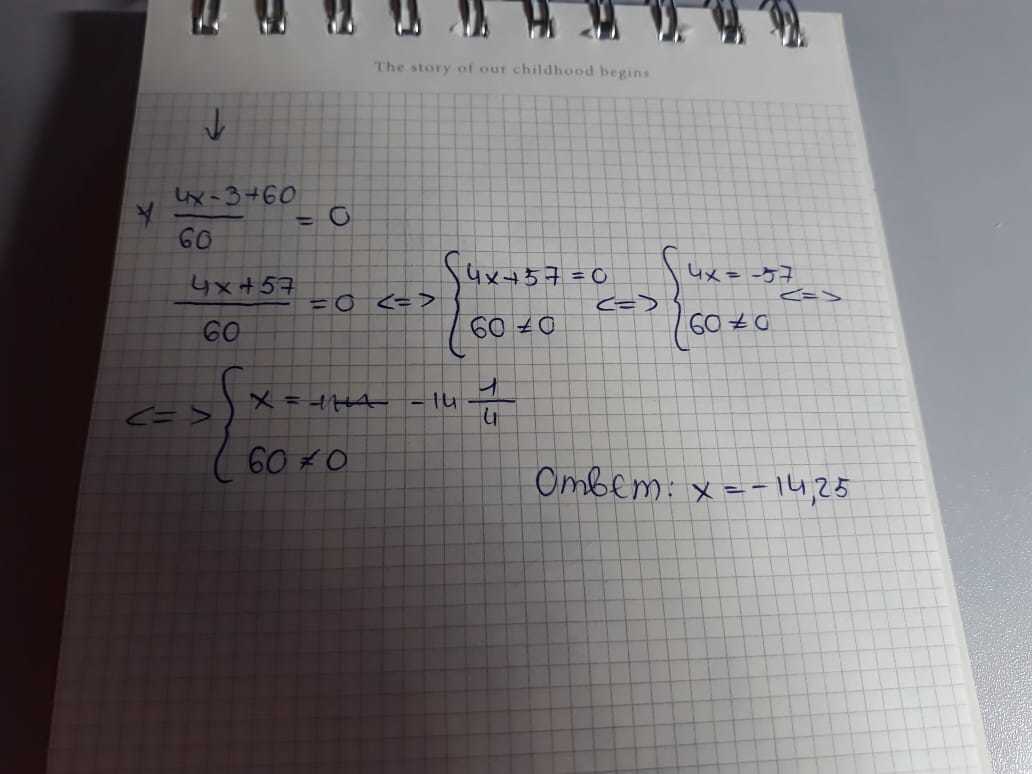 The story of our childhood begins
↓
4x-3+60
60
= 0
4x+57
60
= 0 <=> { 4x+57=0
60≠0
<=> { 4x = -57
60≠0
<=>
<=> { x = -14 1/4
60≠0
Ответ: x = -14,25